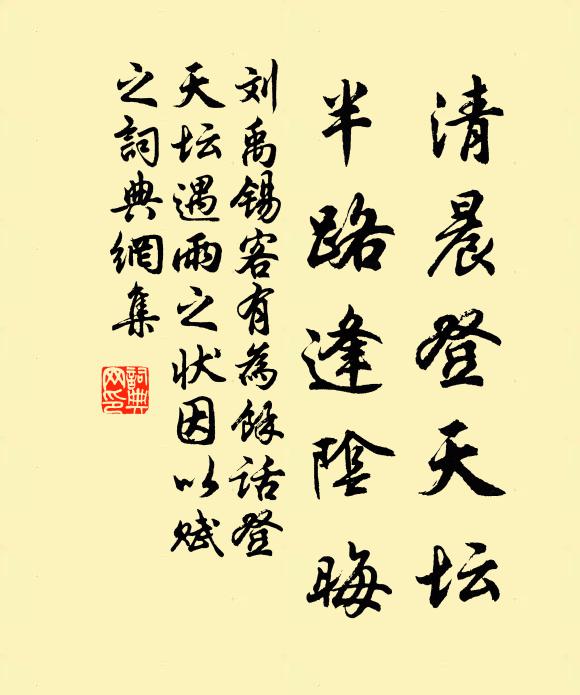 清晨登天坛
半路逢陰晦
刘禹锡客有為餘話登
天坛遇雨之状因以赋
之詞典網集
詞典網印